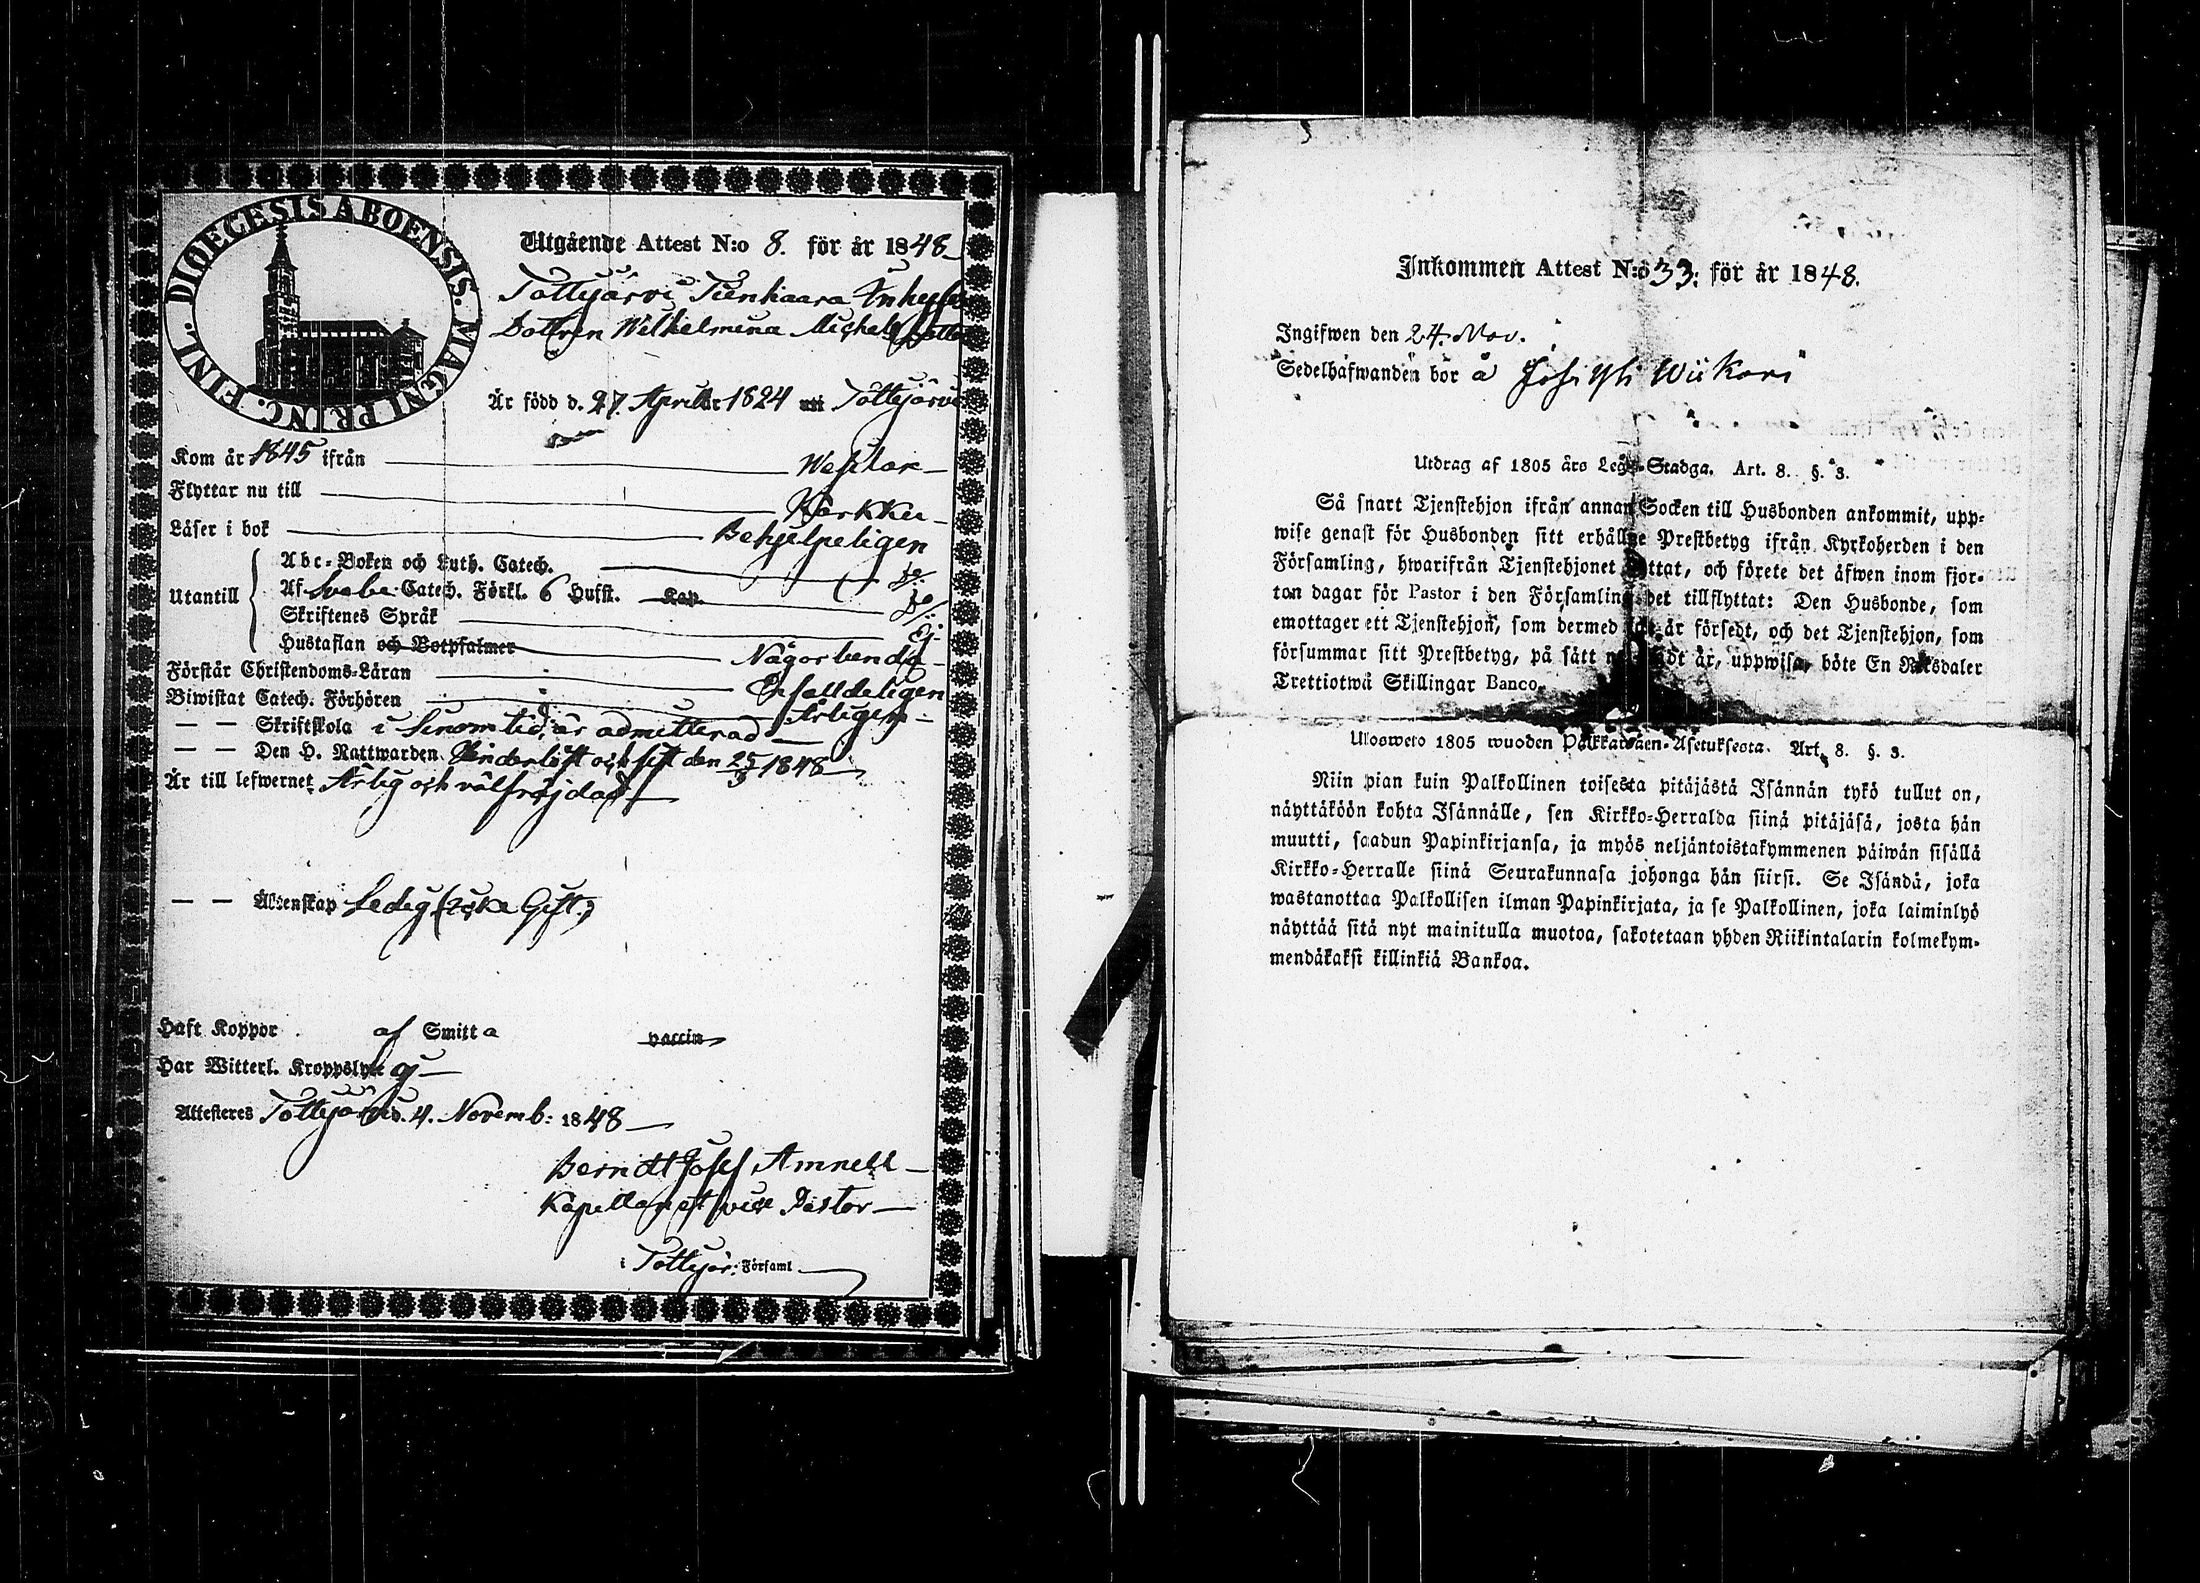 DIOECESIS ABOENSIS. MAGNI PRINC. FINL.
Utgående Attest N:o 8. för år 1848
Tottijärvi Tienhaara Inhyses
Dottren Wilhelmina Michelsdotter
Är född d. 27. April 1824 i Tottijärvi
Kom år 1845 ifrån Wesilax
Flyttar nu till Karkku
Läser i bok Behjelpeligen
Utantill
Abc-Boken och Luth. Catech. do
Af Svebe Catech. Förkl. 6 Hufst. Kap. do
Skriftenes Språk Ej
Hustaflan och Botpsalmer Någorlunda
Förstår Christendoms-Läran Enfalldeligen
Biwistat Catech. Förhören Årligen
— — Skriftskola i sinom tid, är admitterad
— — Den H. Nattwarden Hinderlöst och sist den 25/3 1848
Är till lefwernet Ärlig och välfrejdad
— — Äktenskap Ledig (icke Gift)
Haft Koppor af Smitta vaccin
Har Witterl. Kroppslyte ej
Attesteres Tottijärvi d. 4. Novemb: 1848
Berndt Josef Amnell
Kapellan et vice Pastor
i Tottijär: Församl
Inkommen Attest N:o 33. för år 1848.
Ingifwen den 24. Nov.
Sedelhafwanden bor å Wiikari
Utdrag af 1805 års Lego-Stadga. Art. 8. §. 3.
Så snart Tjenstehjon ifrån annan Socken till Husbonden ankommit, upp-
wise genast för Husbonden sitt erhållne Prestbetyg ifrån Kyrkoherden i den
Församling, hwarifrån Tjenstehjonet flyttat, och förete det äfwen inom fjor-
ton dagar för Pastor i den Församling det tillflyttat: Den Husbonde, som
emottager ett Tjenstehjon, som dermed icke är försedt, och det Tjenstehjon, som
försummar sitt Prestbetyg, på sätt nu sagdt är, uppwisa, böte En Riksdaler
Trettiotwå Skillingar Banco.
Ulosweto 1805 wuoden Palkkawäen-Asetuksesta. Art. 8. §. 3.
Niin pian kuin Palkollinen toisesta pitäjästä Isännän tykö tullut on,
näyttäköön kohta Isännälle, sen Kirkko-Herralda siinä pitäjäsä, josta hän
muutti, saadun Papinkirjansa, ja myös neljäntoistakymmenen päiwän sisällä
Kirkko-Herralle siinä Seurakunnasa johonga hän siirsi. Se Isändä, joka
wastanottaa Palkollisen ilman Papinkirjata, ja se Palkollinen, joka laiminlyö
näyttää sitä nyt mainitulla muotoa, sakotetaan yhden Riikintalarin kolmekym-
mendäkaksi killinkiä Bankoa.